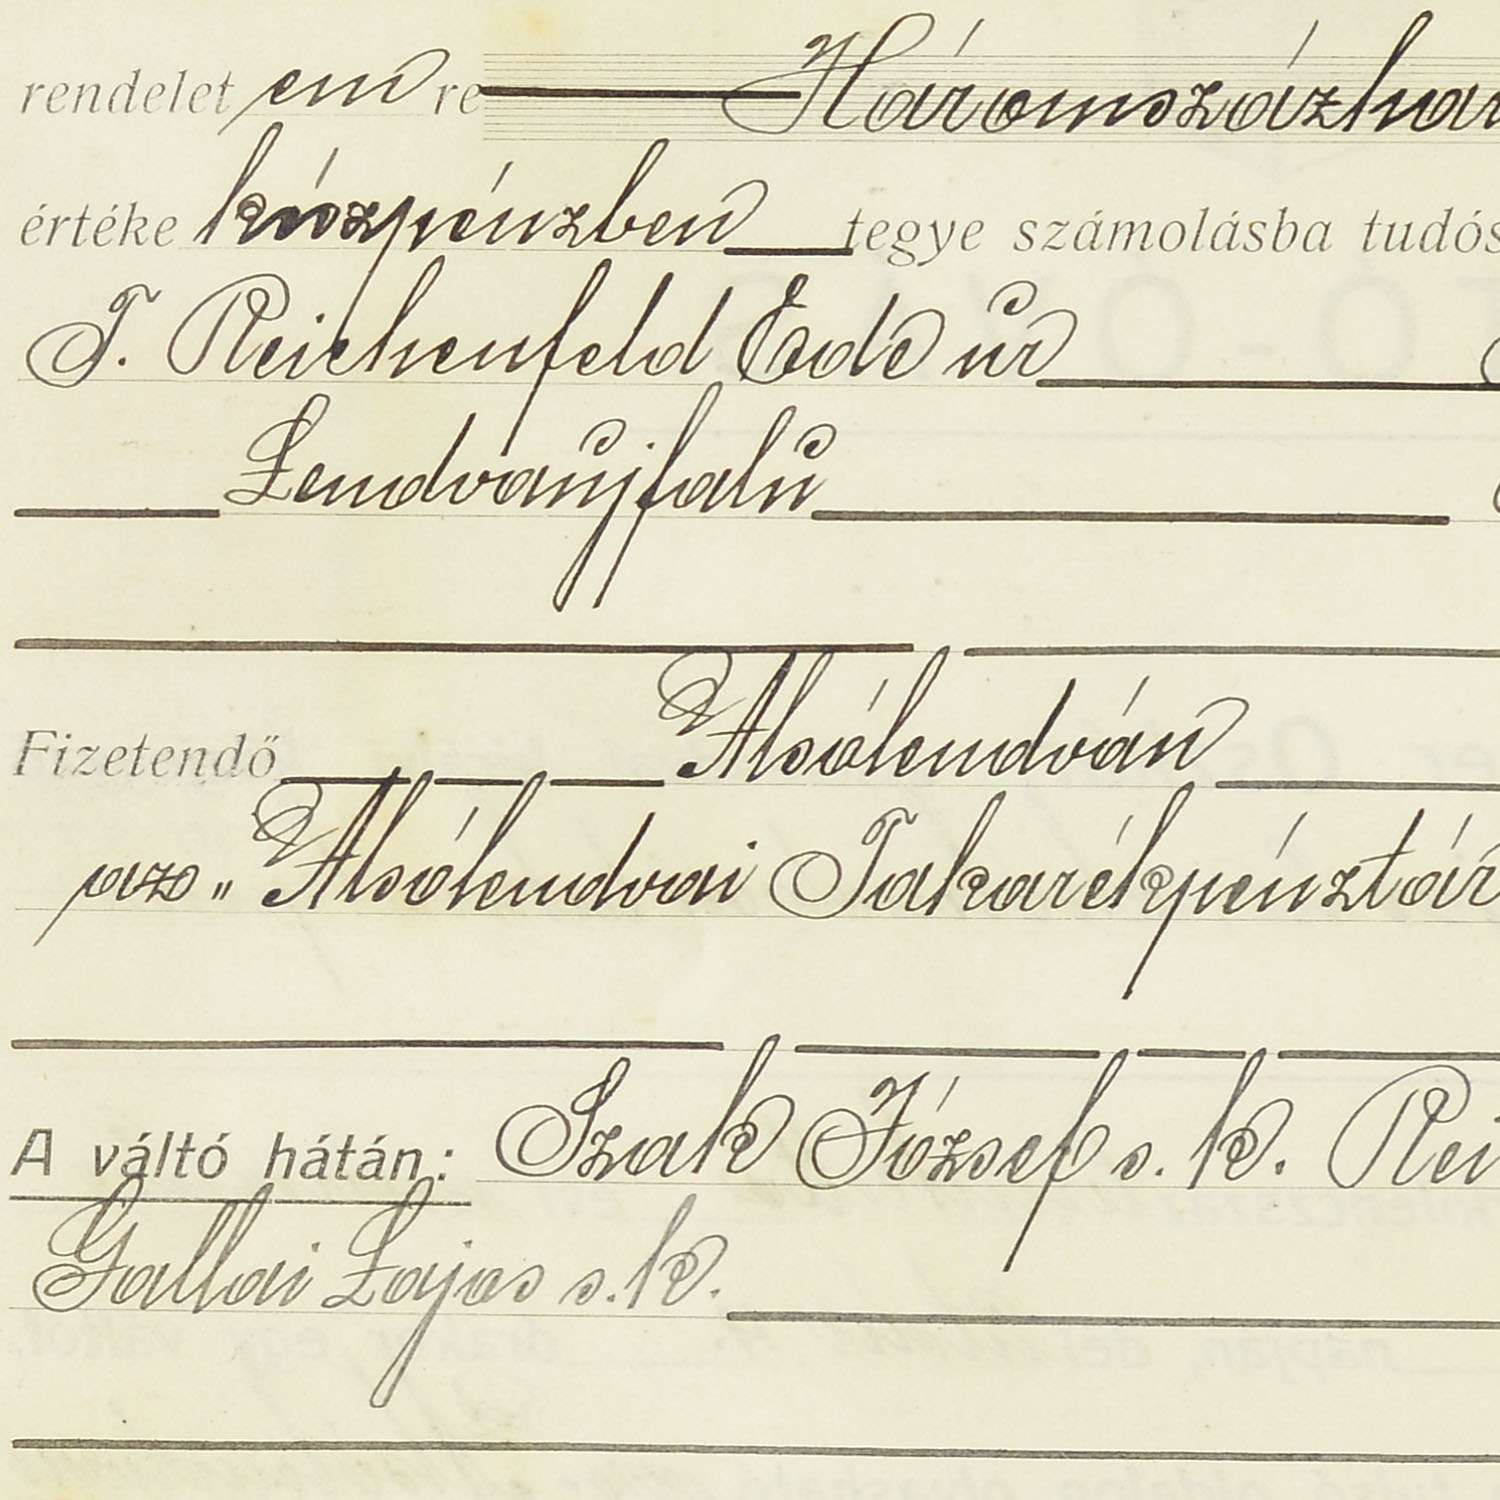 rendelet em re Háromszázhar
értéke készpénzben tegye számolásba tudós
T. Reichenfeld Ede úr
Lendvaújfalu
Fizetendő Alsólendván
az „Alsólendvai Takarékpénztár
A váltó hátán: Szak József s. k. Rei
Gallai Lajos s. k.